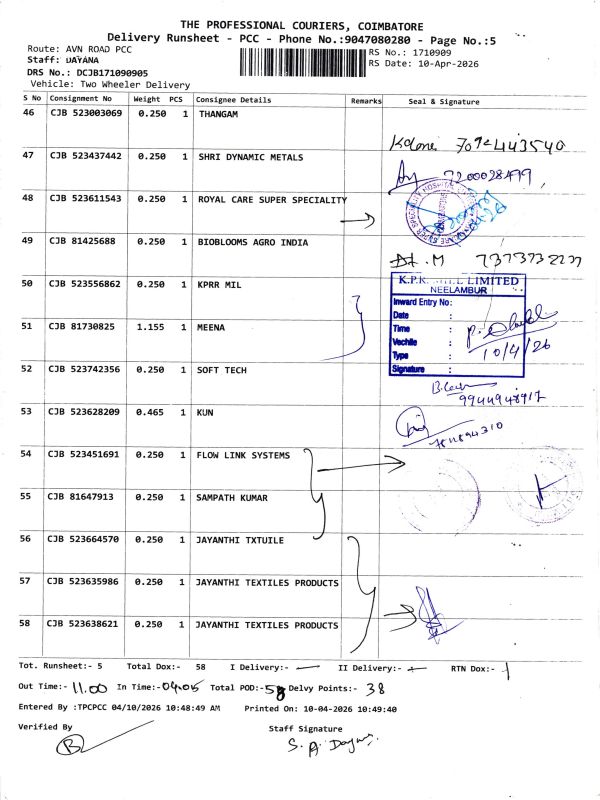 THE PROFESSIONAL COURIERS, COIMBATORE
Delivery Runsheet - PCC - Phone No.:9047080280 - Page No.:5
Route: AVN ROAD PCC
RS No.: 1710909
Staff: DAYANA
RS Date: 10-Apr-2026
DRS No.: DCJB171090905
Vehicle: Two Wheeler Delivery
S No Consignment No Weight PCS Consignee Details Remarks Seal & Signature
46 CJB 523003069 0.250 1 THANGAM
47 CJB 523437442 0.250 1 SHRI DYNAMIC METALS
7200028499
48 CJB 523611543 0.250 1 ROYAL CARE SUPER SPECIALITY
49 CJB 81425688 0.250 1 BIOBLOOMS AGRO INDIA
50 CJB 523556862 0.250 1 KPRR MIL
LIMITED
NEELAMBUR
Inward Entry No:
Date :
51 CJB 81730825 1.155 1 MEENA
Time :
Vechile :
Type : 10/4/26
Signature :
52 CJB 523742356 0.250 1 SOFT TECH
53 CJB 523628209 0.465 1 KUN
54 CJB 523451691 0.250 1 FLOW LINK SYSTEMS
55 CJB 81647913 0.250 1 SAMPATH KUMAR
56 CJB 523664570 0.250 1 JAYANTHI TXTUILE
57 CJB 523635986 0.250 1 JAYANTHI TEXTILES PRODUCTS
58 CJB 523638621 0.250 1 JAYANTHI TEXTILES PRODUCTS
Tot. Runsheet:- 5 Total Dox:- 58 I Delivery:- II Delivery:- RTN Dox:-
Out Time:- 11.00 In Time:- 04.05 Total POD:- 58 Delvy Points:- 38
Entered By :TPCPCC 04/10/2026 10:48:49 AM Printed On: 10-04-2026 10:49:40
Verified By Staff Signature